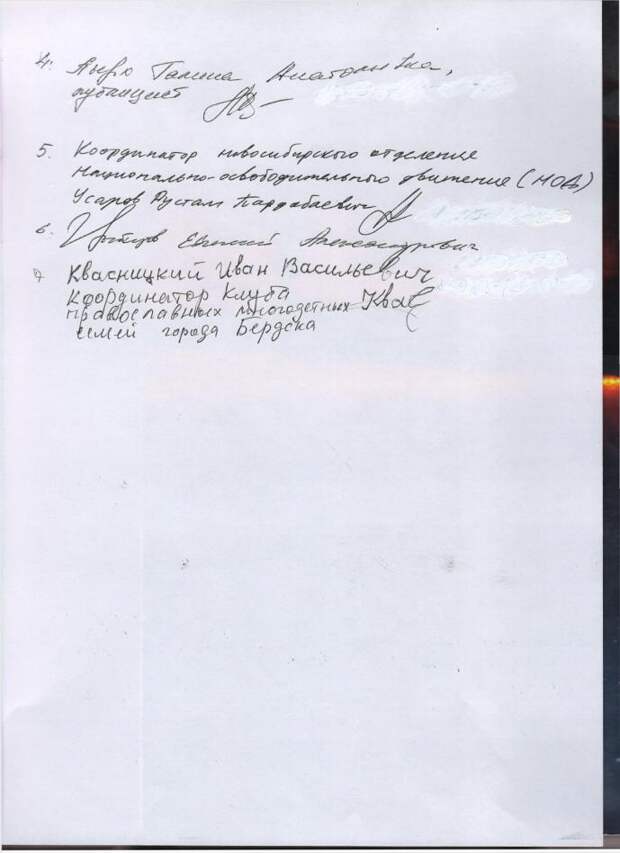 4. Галина Анатольевна,
публицист
5. Координатор новосибирского отделение
Национально-освободительного движение (НОД)
Усаров Рустам Пардабаевич
6. Евгений Александрович
7 Квасницкий Иван Васильевич
координатор клуба
православных многодетных Квас
семей города Бердска